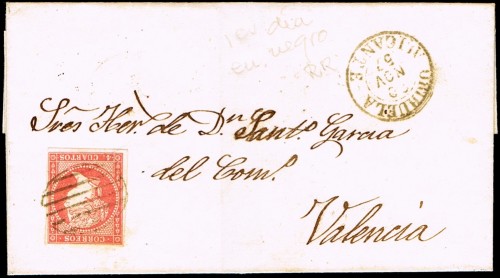 1er dia
en negro
RR
ORIHUELA
ALICANTE
5
NOV
57
Sres Her.s de D.n Sant.o Garcia
del Com.o
Valencia
CORREOS
4 CUARTOS